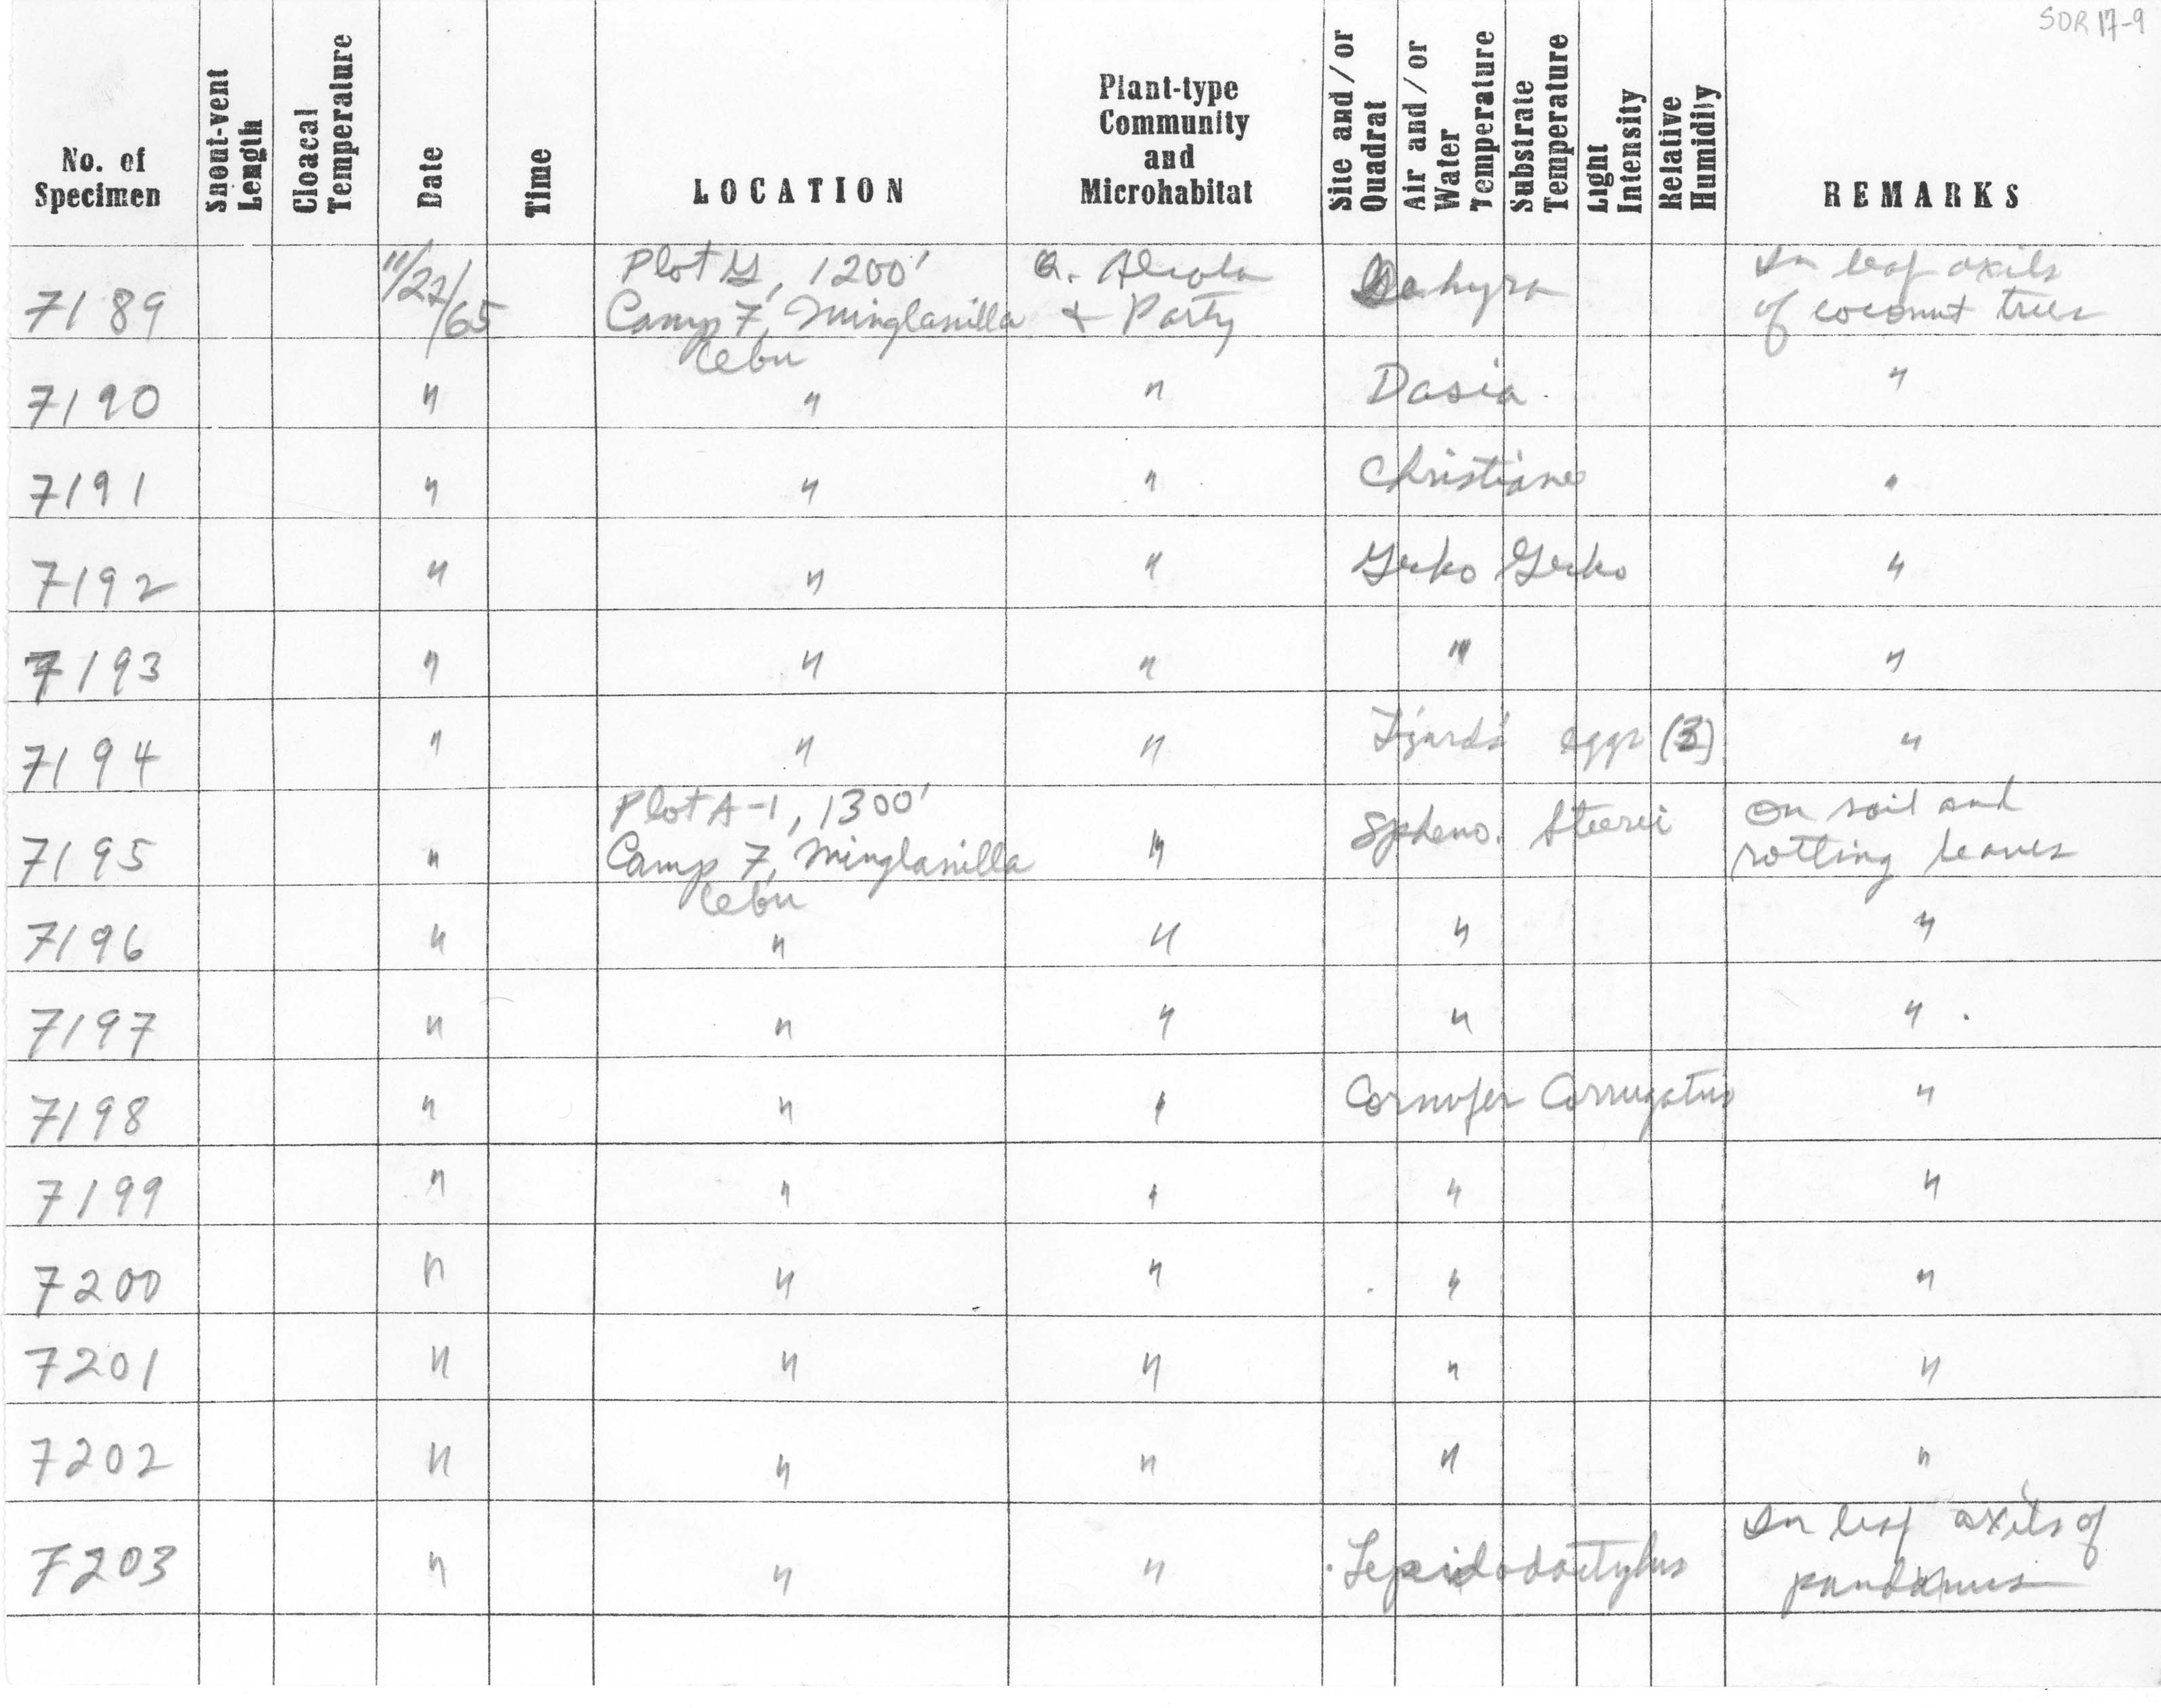 SDR 17-9
No. of Specimen Snout-vent Length Cloacal Temperature Date Time LOCATION Plant-type Community and Microhabitat Site and / or Quadrat Air and / or Water Temperature Substrate Temperature Light Intensity Relative Humidity REMARKS
7189 11/22/65 Plot G, 1200' Camp 7, Minglanilla Cebu A. Alcala & Party Gehyra In leaf axils of coconut trees
7190 " " " Dasia "
7191 " " " "
7192 " " " Gekko Gekko "
7193 " " " " "
7194 " " " Lizards' eggs (3) "
7195 " Plot A-1, 1300' Camp 7, Minglanilla Cebu " Spheno. Steerei On soil and rotting leaves
7196 " " " " "
7197 " " " " "
7198 " " " Cornufer Corrugatus "
7199 " " " " "
7200 " " " " "
7201 " " " " "
7202 " " " " "
7203 " " " Lepidodactylus In leaf axils of pandanus